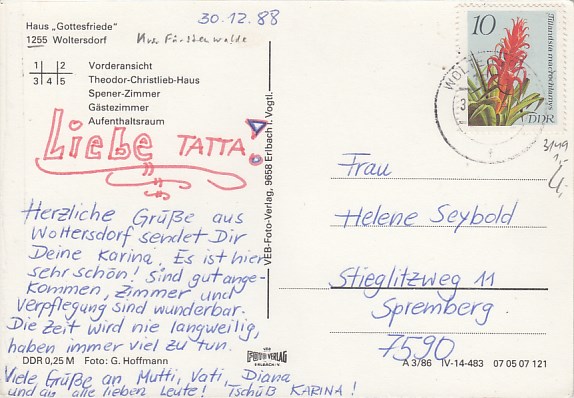 Haus „Gottesfriede"
1255 Woltersdorf
30.12.88
Krs. Fürstenwalde
1 2
3 4 5
Vorderansicht
Theodor-Christlieb-Haus
Spener-Zimmer
Gästezimmer
Aufenthaltsraum
Liebe TATTA!
Herzliche Grüße aus
Woltersdorf sendet Dir
Deine Karina. Es ist hier
sehr schön! Sind gut ange-
kommen, Zimmer und
Verpflegung sind wunderbar.
Die Zeit wird nie langweilig,
haben immer viel zu tun.
DDR 0,25 M Foto: G. Hoffmann
Viele Grüße an Mutti, Vati, Diana
und an alle lieben Leute! Tschüß KARINA!
VEB-Foto-Verlag, 9658 Erlbach i. Vogtl.
VEB
FOTO VERLAG
ERLBACH/V.
10
Tillandsia macrochlamys
DDR
WOLTE
3149
4,-
Frau
Helene Seybold
Stieglitzweg 11
Spremberg
7590
A 3/86 IV-14-483 07 05 07 121